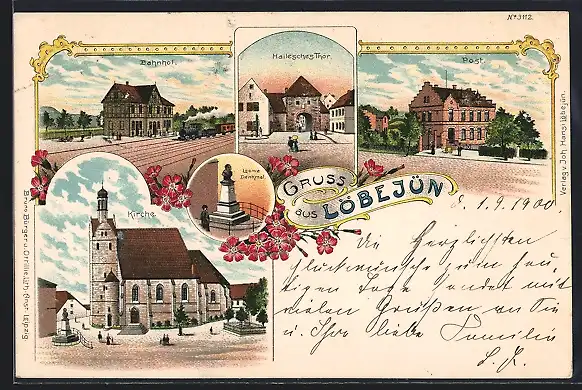 No 3112.
Bahnhof.
Hallesches Thor.
Post.
Kirche
Loewe
Denkmal.
GRUSS
aus LÖBEJÜN
Verlag v. Joh. Hansi Löbejün.
Bruno Bürger u. Ottillie, Lith. Anst. Leipzig
d. 1.9.1900.
Die Herzlichsten
Glückwünsche zum heu-
tigen Tage sendet mit
vielen Grüßen an Sie
u. Ihre liebe Familie